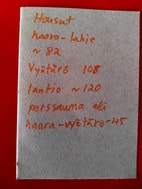 Housut
haara-lahje
~ 82
Vyötärö 108
lantio ~120
perssauma eli
haara-vyötärö-45